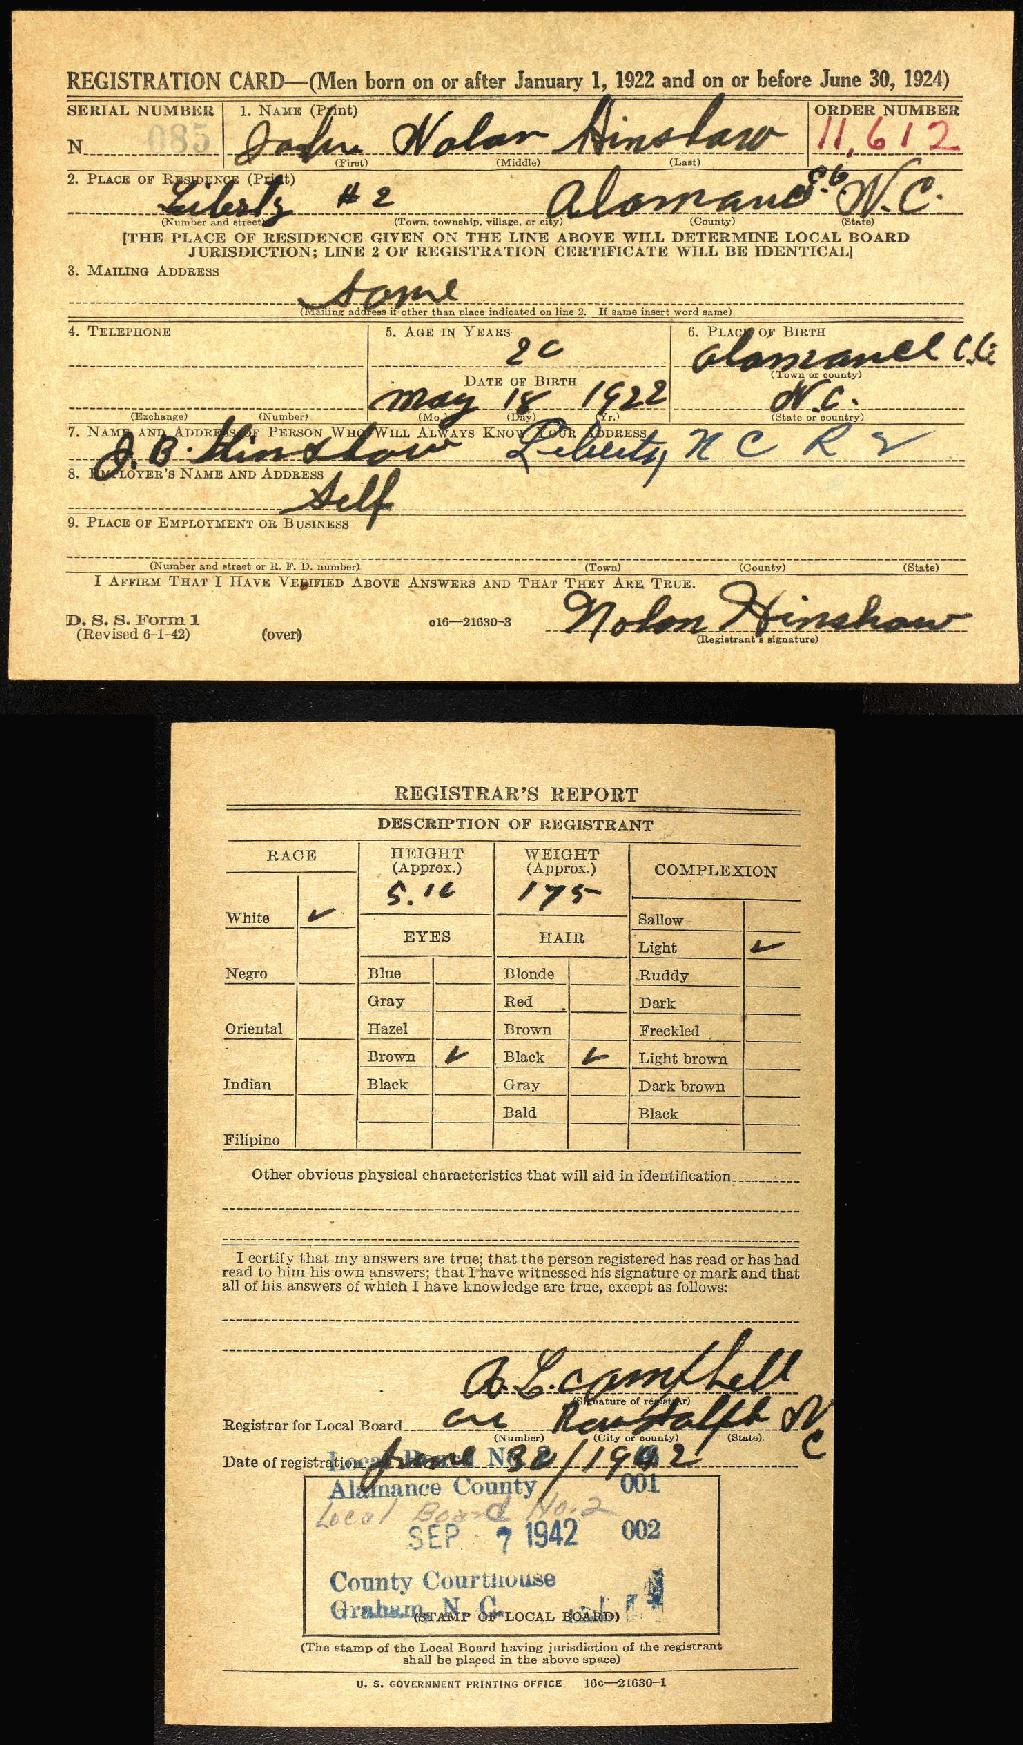 REGISTRATION CARD—(Men born on or after January 1, 1922 and on or before June 30, 1924)
SERIAL NUMBER 1. NAME (Print) ORDER NUMBER
N 085 John Nolan Hinshaw 11,612
(First) (Middle) (Last)
2. PLACE OF RESIDENCE (Print)
Liberty #2 Alamance N.C.
(Number and street) (Town, township, village, or city) (County) (State)
[THE PLACE OF RESIDENCE GIVEN ON THE LINE ABOVE WILL DETERMINE LOCAL BOARD
JURISDICTION; LINE 2 OF REGISTRATION CERTIFICATE WILL BE IDENTICAL]
3. MAILING ADDRESS
Same
(Mailing address if other than place indicated on line 2. If same insert word same)
4. TELEPHONE 5. AGE IN YEARS 6. PLACE OF BIRTH
20 Alamance Co
(Town or county)
DATE OF BIRTH
May 18 1922 N.C.
(Exchange) (Number) (Mo.) (Day) (Yr.) (State or country)
7. NAME AND ADDRESS OF PERSON WHO WILL ALWAYS KNOW YOUR ADDRESS
J. B. Hinshaw Liberty, N C R 2
8. EMPLOYER'S NAME AND ADDRESS
Self
9. PLACE OF EMPLOYMENT OR BUSINESS
(Number and street or R. F. D. number) (Town) (County) (State)
I AFFIRM THAT I HAVE VERIFIED ABOVE ANSWERS AND THAT THEY ARE TRUE.
D. S. S. Form 1 o16—21630-3 Nolan Hinshaw
(Revised 6-1-42) (over) (Registrant's signature)
REGISTRAR'S REPORT
DESCRIPTION OF REGISTRANT
RACE HEIGHT (Approx.) WEIGHT (Approx.) COMPLEXION
5.10 175
White ✓ Sallow
EYES HAIR Light ✓
Negro Blue Blonde Ruddy
Gray Red Dark
Oriental Hazel Brown Freckled
Brown ✓ Black ✓ Light brown
Indian Black Gray Dark brown
Bald Black
Filipino
Other obvious physical characteristics that will aid in identification
I certify that my answers are true; that the person registered has read or has had
read to him his own answers; that I have witnessed his signature or mark and that
all of his answers of which I have knowledge are true, except as follows:
A. L. Campbell
(Signature of registrar)
Registrar for Local Board Randolph N C
(Number) (City or county) (State)
Date of registration June 30/1942
Local Board No. 2
Alamance County 001
Local Board No. 2
SEP 7 1942 002
County Courthouse
Graham, N. C.
(STAMP OF LOCAL BOARD)
(The stamp of the Local Board having jurisdiction of the registrant
shall be placed in the above space)
U. S. GOVERNMENT PRINTING OFFICE 16c—21630-1